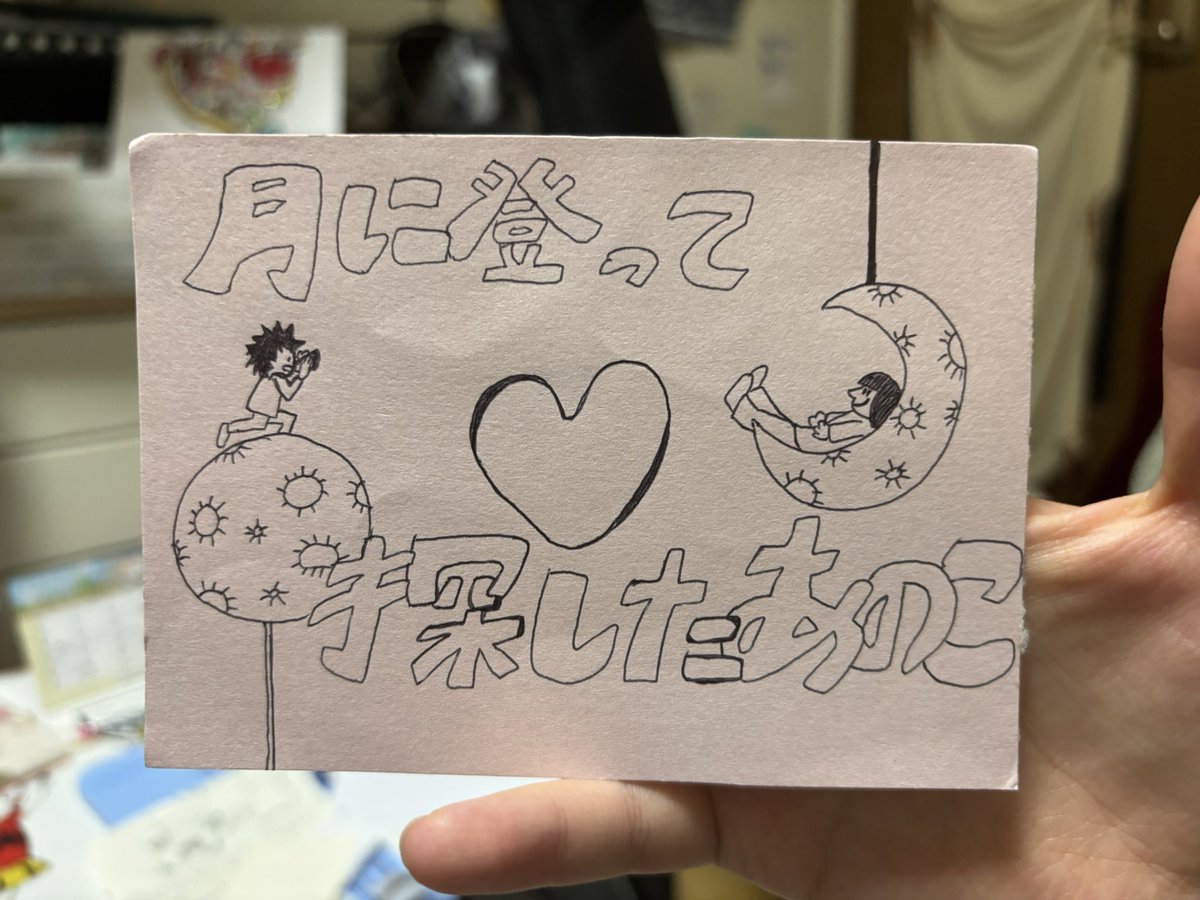 月に登って
探したあのこ